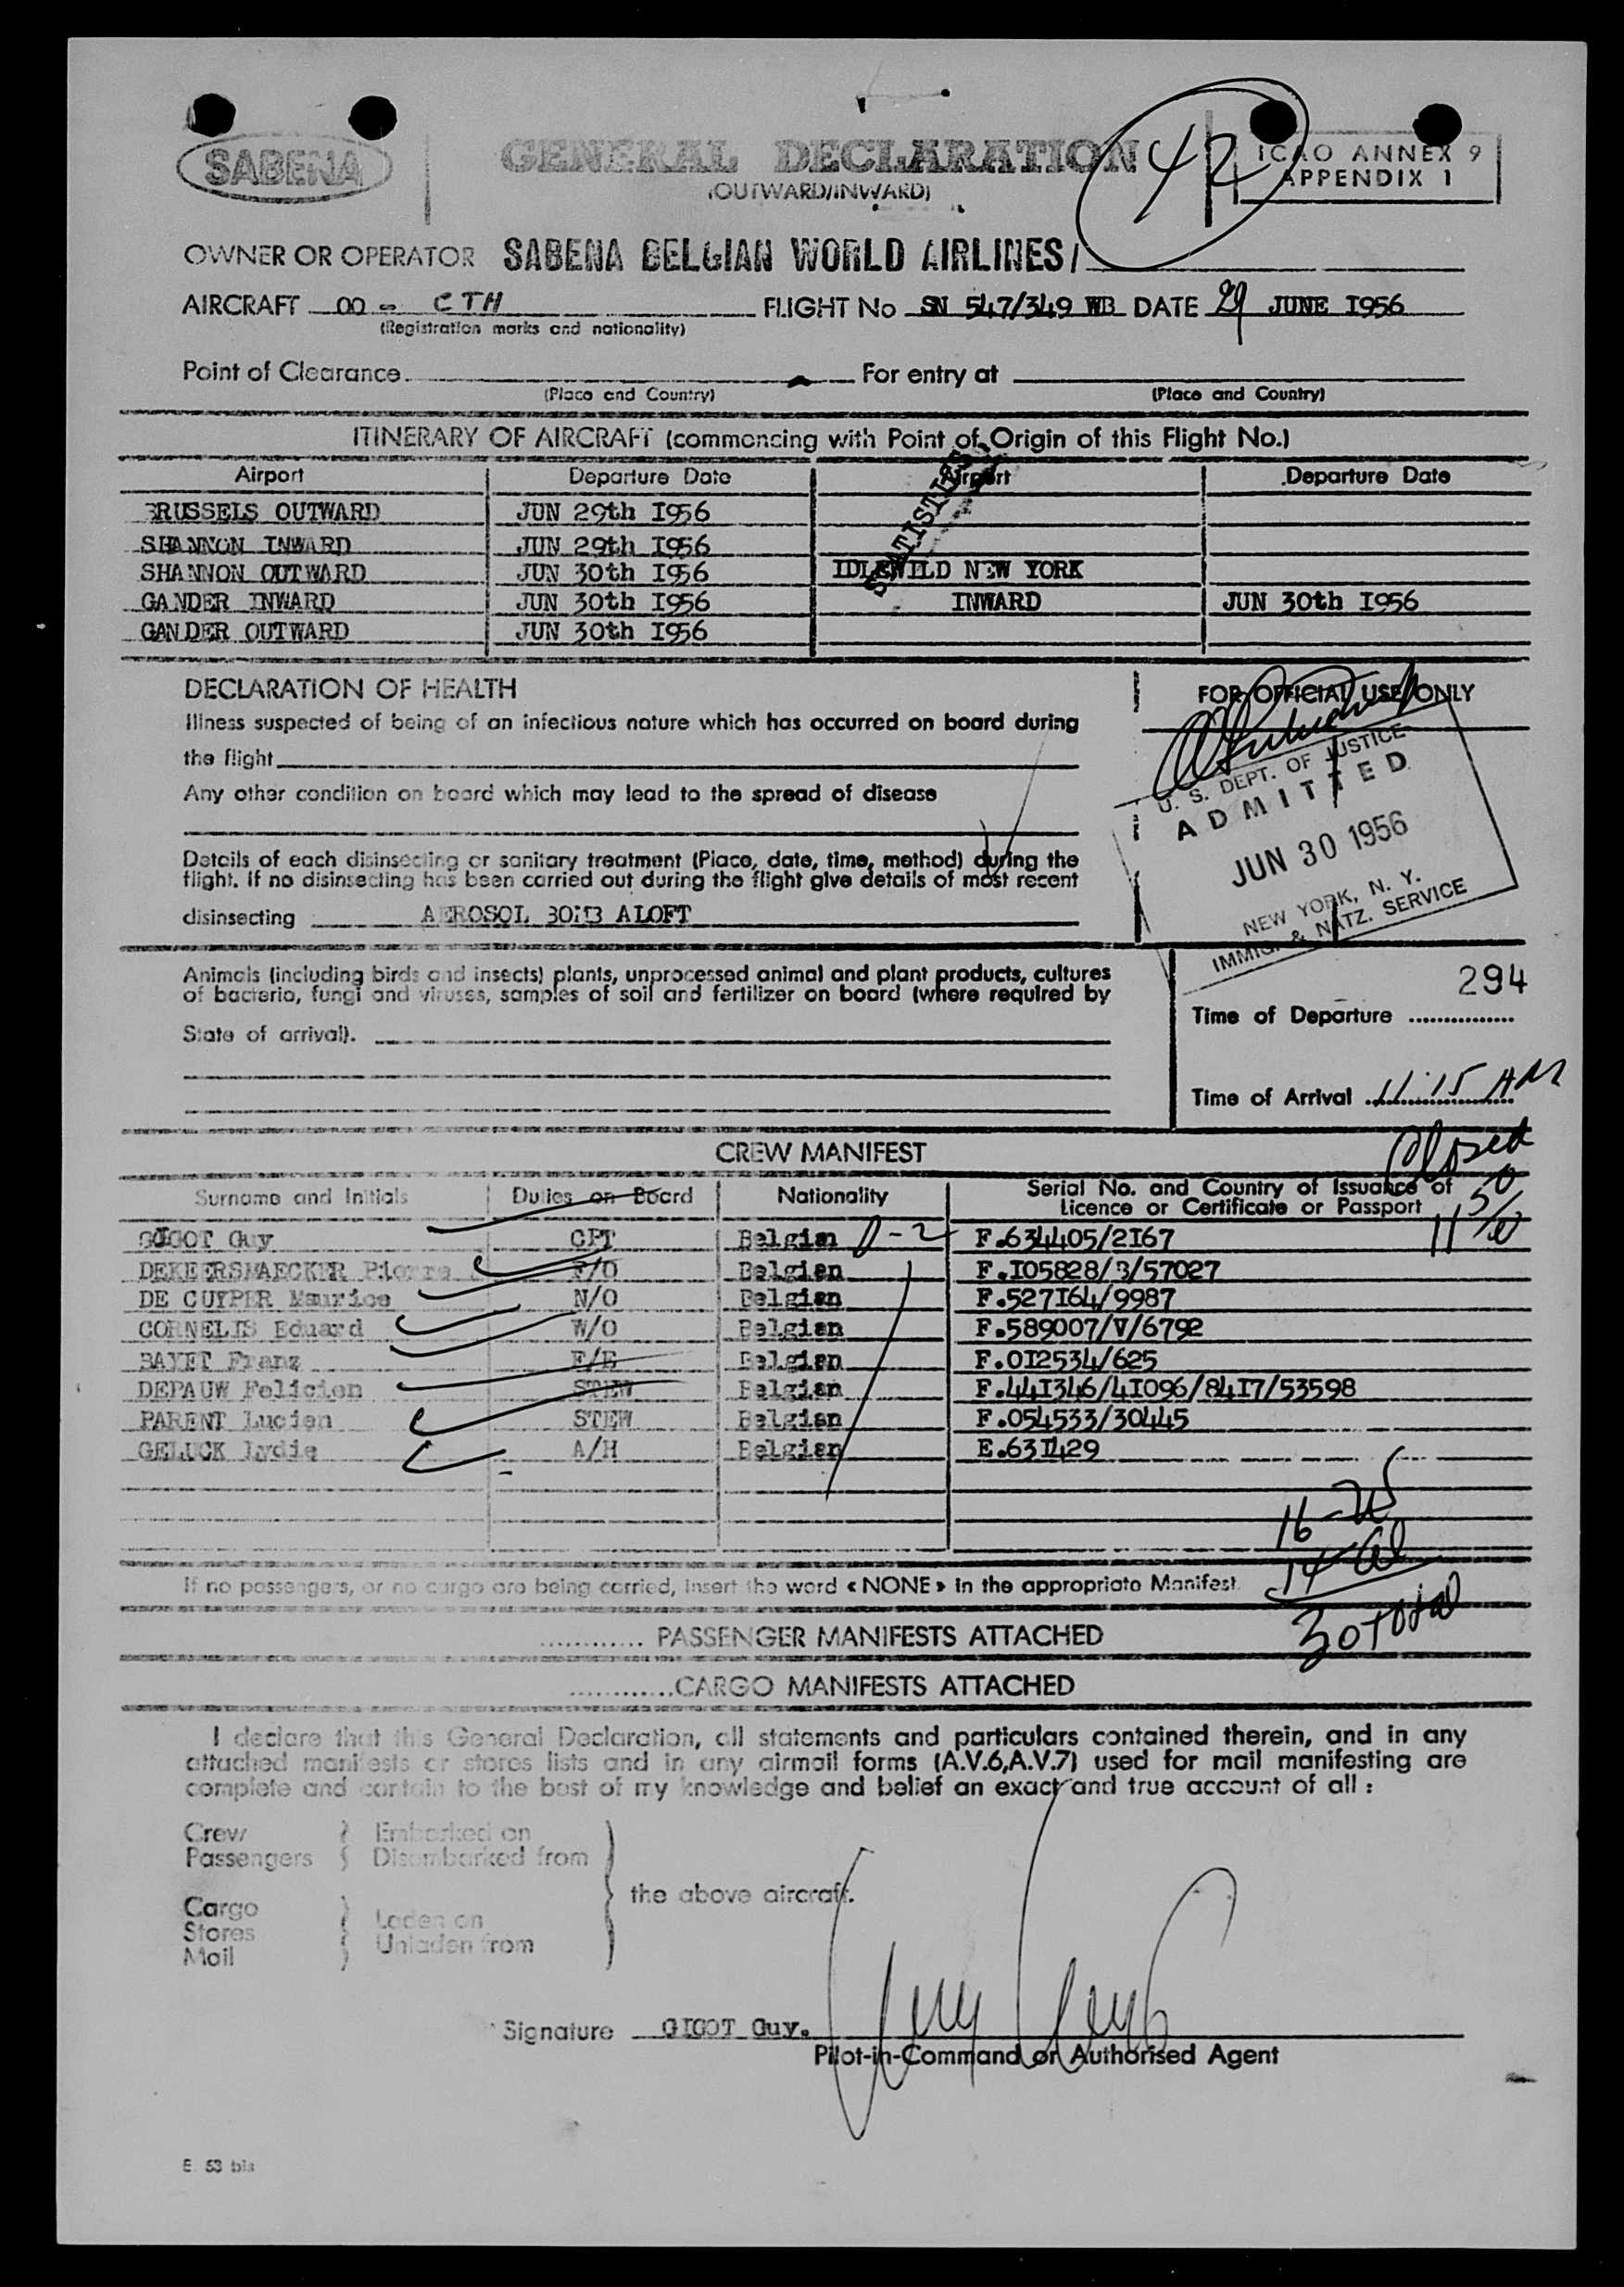 SABENA
GENERAL DECLARATION
(OUTWARD/INWARD)
42
ICAO ANNEX 9
APPENDIX 1
OWNER OR OPERATOR SABENA BELGIAN WORLD AIRLINES/
AIRCRAFT OO - CTH FLIGHT No SN 547/349 WB DATE 29 JUNE I956
(Registration marks and nationality)
Point of Clearance For entry at
(Place and Country) (Place and Country)
ITINERARY OF AIRCRAFT (commencing with Point of Origin of this Flight No.)
STATISTICS
Airport Departure Date Airport Departure Date
BRUSSELS OUTWARD JUN 29th I956
SHANNON INWARD JUN 29th I956
SHANNON OUTWARD JUN 30th I956 IDLEWILD NEW YORK
GANDER INWARD JUN 30th I956 INWARD JUN 30th I956
GANDER OUTWARD JUN 30th I956
DECLARATION OF HEALTH
Illness suspected of being of an infectious nature which has occurred on board during
the flight
Any other condition on board which may lead to the spread of disease
Details of each disinsecting or sanitary treatment (Place, date, time, method) during the
flight. If no disinsecting has been carried out during the flight give details of most recent
disinsecting AEROSOL BOMB ALOFT
FOR OFFICIAL USE ONLY
U. S. DEPT. OF JUSTICE
ADMITTED
JUN 30 1956
NEW YORK, N. Y.
IMMIG. & NATZ. SERVICE
Animals (including birds and insects) plants, unprocessed animal and plant products, cultures
of bacteria, fungi and viruses, samples of soil and fertilizer on board (where required by
State of arrival).
294
Time of Departure
Time of Arrival 11:15 AM
Closed
CREW MANIFEST
Surname and Initials Duties on Board Nationality Serial No. and Country of Issuance of
Licence or Certificate or Passport
GIGOT Guy CPT Belgian 0-2 F.634405/2I67
DEKEERSMAECKER Pierre F/O Belgian F.I05828/3/57027
DE CUYPER Maurice N/O Belgian F.527I64/9987
CORNELIS Eduard W/O Belgian F.589007/V/6792
BAYET Franz F/E Belgian F.0I2534/625
DEPAUW Felicien STEW Belgian F.44I346/4I096/84I7/53598
PARENT Lucien STEW Belgian F.054533/30445
GELUCK Lydie A/H Belgian E.63I429
16-US
14-al
30 total
If no passengers, or no cargo are being carried, insert the word « NONE » in the appropriate Manifest.
............ PASSENGER MANIFESTS ATTACHED
............CARGO MANIFESTS ATTACHED
I declare that this General Declaration, all statements and particulars contained therein, and in any
attached manifests or stores lists and in any airmail forms (A.V.6,A.V.7) used for mail manifesting are
complete and contain to the best of my knowledge and belief an exact and true account of all :
Crew Embarked on
Passengers Disembarked from
the above aircraft.
Cargo
Stores Laden on
Mail Unladen from
Signature GIGOT Guy.
Pilot-in-Command or Authorised Agent
E. 53 bis